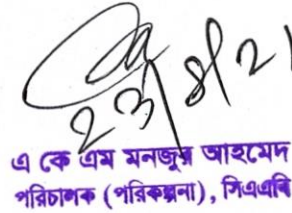 ২৩/৪/২১
এ কে এম মনজুর আহমেদ
পরিচালক (পরিকল্পনা), সিএএবি